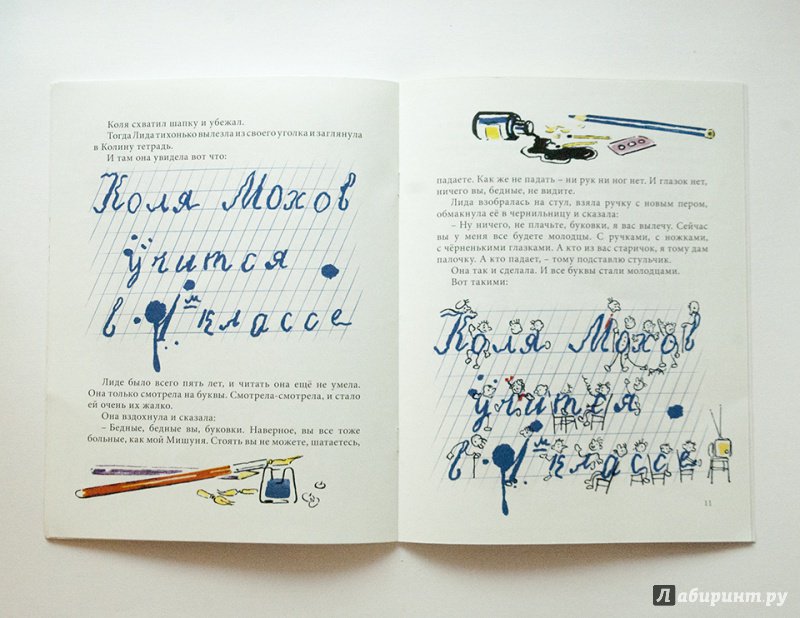 Коля схватил шапку и убежал.
Тогда Лида тихонько вылезла из своего уголка и заглянула
в Колину тетрадь.
И там она увидела вот что:
Коля Мохов
учится
в 1м классе
Лиде было всего пять лет, и читать она ещё не умела.
Она только смотрела на буквы. Смотрела-смотрела, и стало
ей очень их жалко.
Она вздохнула и сказала:
– Бедные, бедные вы, буковки. Наверное, вы все тоже
больные, как мой Мишуня. Стоять вы не можете, шатаетесь,
падаете. Как же не падать – ни рук ни ног нет. И глазок нет,
ничего вы, бедные, не видите.
Лида взобралась на стул, взяла ручку с новым пером,
обмакнула её в чернильницу и сказала:
– Ну ничего, не плачьте, буковки, я вас вылечу. Сейчас
вы у меня все будете молодцы. С ручками, с ножками,
с чёрненькими глазками. А кто из вас старичок, я тому дам
палочку. А кто падает, – тому подставлю стульчик.
Она так и сделала. И все буквы стали молодцами.
Вот такими:
Коля Мохов
учится
в 1м классе
11
Лабиринт.ру